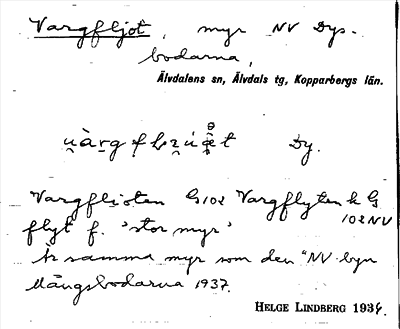 Vargfljot, myr NV Dys-
bodarna,
Älvdalens sn, Älvdals tg, Kopparbergs län.
Dy.
Vargfljoten G102 Vargflyten k G
102 NV
flyt f. 'stor myr'
Är samma myr som den "NV byn
Mångsbodarna 1937.
HELGE LINDBERG 1934.